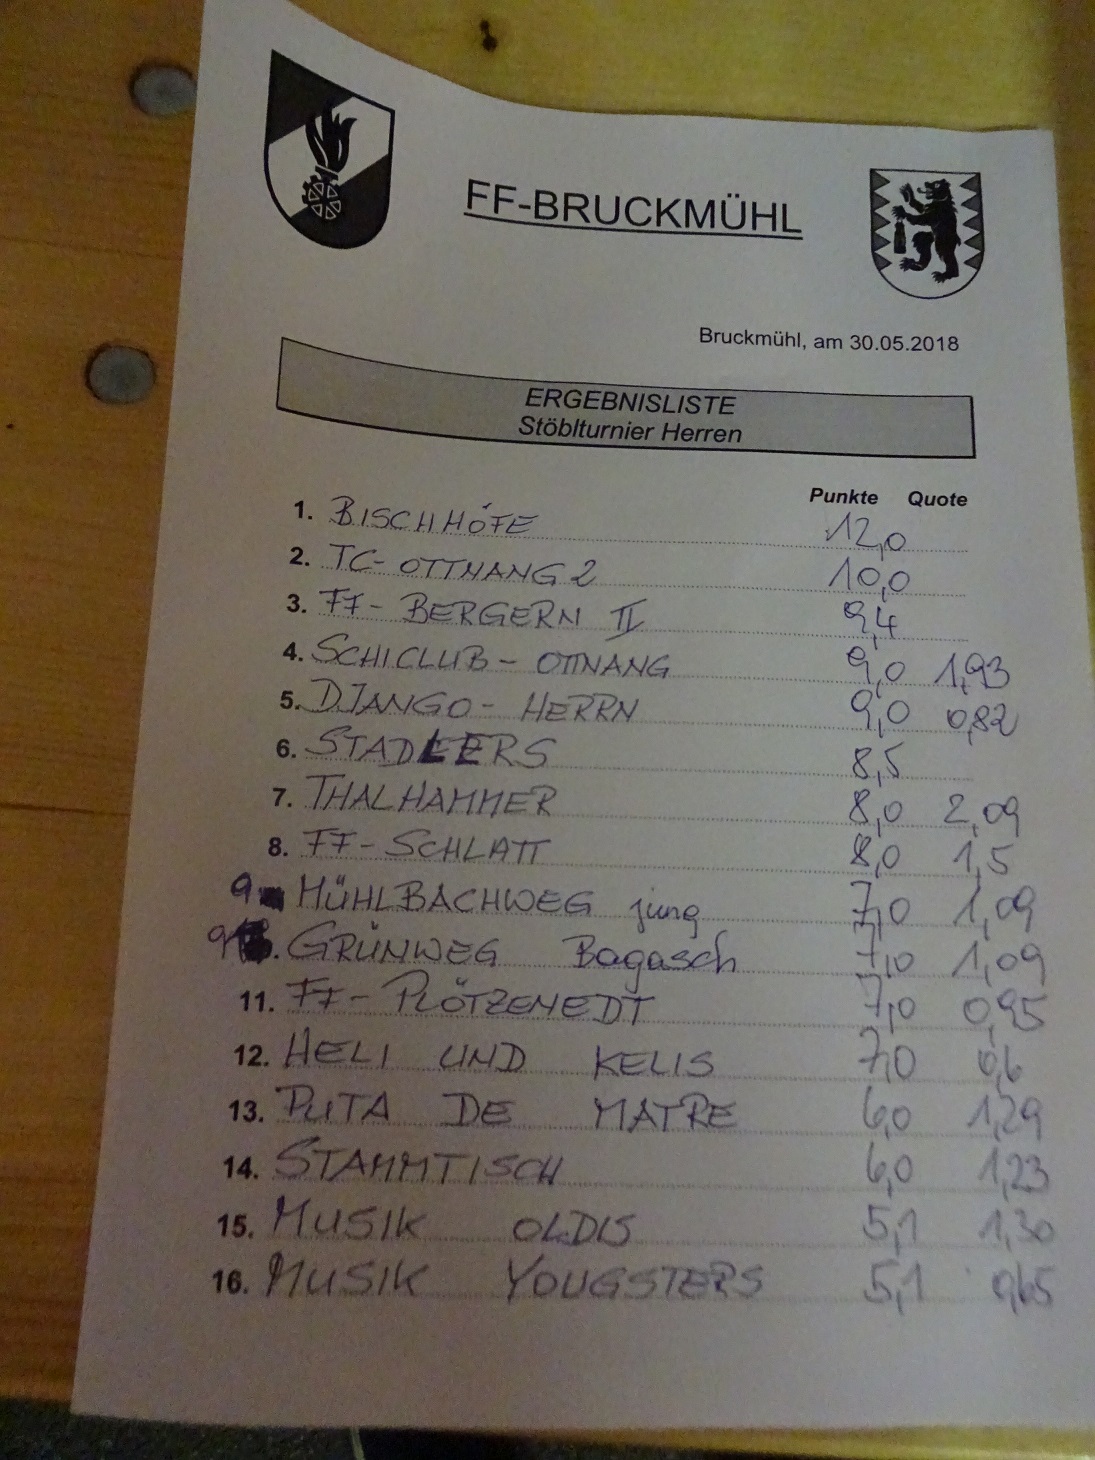 FF-BRUCKMÜHL
Bruckmühl, am 30.05.2018
ERGEBNISLISTE
Stöblturnier Herren
Punkte Quote
1. BISCHHÓFE 12,0
2. TC-OTTNANG 2 10,0
3. FF-BERGERN II 9,4
4. SCHICLUB-OTTNANG 9,0 1,93
5. DJANGO-HERRN 9,0 0,82
6. STADLERS 8,5
7. THALHAMMER 8,0 2,09
8. FF-SCHLATT 8,0 1,5
9. MÜHLBACHWEG jung 7,0 1,09
9. GRÜNWEG Bagasch 7,0 1,09
11. FF-PLÖTZENEDT 7,0 0,95
12. HELI UND KELIS 7,0 0,6
13. PUTA DE MATRE 6,0 1,29
14. STAMMTISCH 6,0 1,23
15. MUSIK OLDIS 5,1 1,30
16. MUSIK YOUGSTERS 5,1 0,65